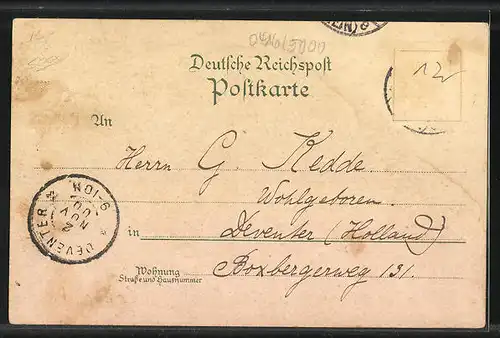 Deutsche Reichspost
Postkarte
An
Herrn G. Kedde.
Wohlgeboren.
in Deventer (Holland)
Boxbergerweg 131.
Wohnung
Straße und Hausnummer
DEVENTER
2
NOV
00
9-10N
12